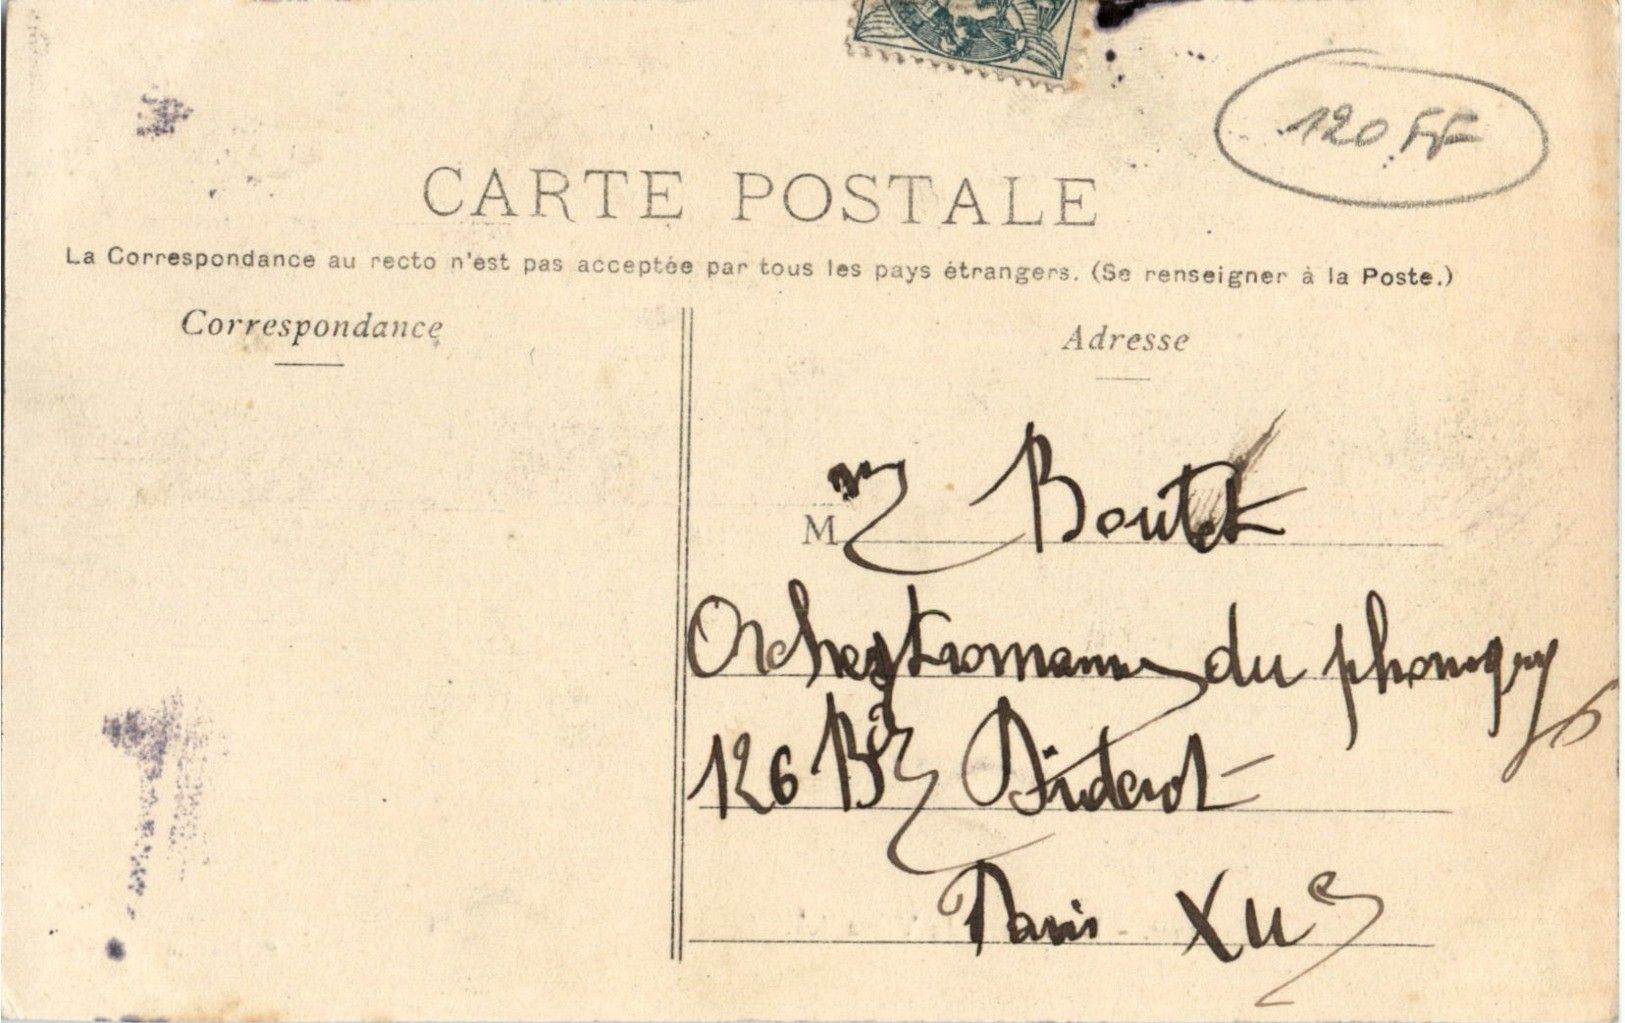 120 FF
CARTE POSTALE
La Correspondance au recto n'est pas acceptée par tous les pays étrangers. (Se renseigner à la Poste.)
Correspondance
Adresse
M Boutet
du
126 Bd Diderot
Paris XIIe